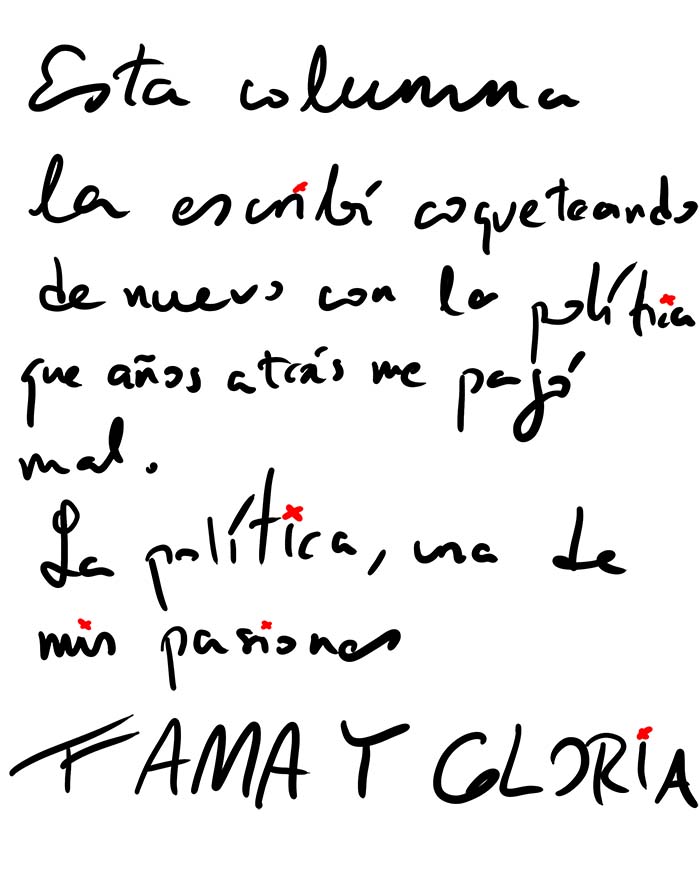 Esta columna
la escribí coqueteando
de nuevo con la política
que años atrás me pagó
mal.
La política, una de
mis pasiones
FAMA Y GLORiA